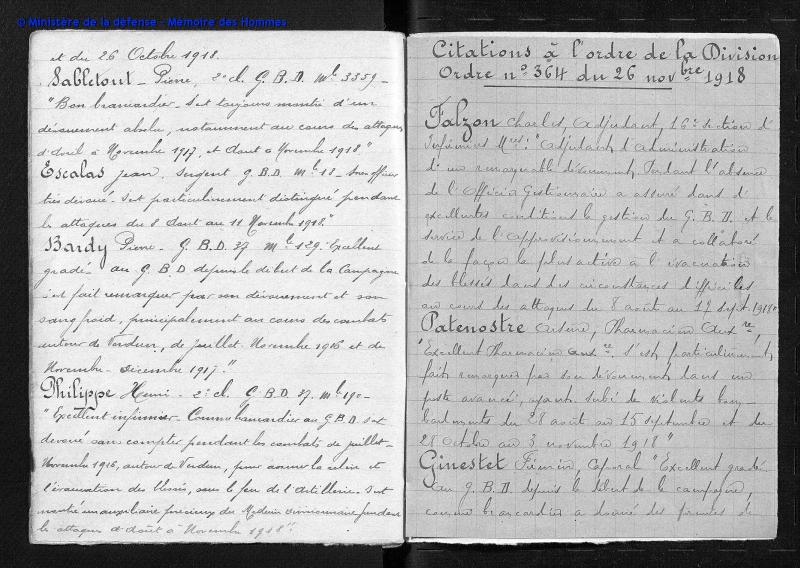 © Ministère de la défense - Mémoire des Hommes
et du 26 Octobre 1918.
Sabletout - Pierre, 2e cl. G.B.D. Mle 3359 -
"Bon brancardier. S'est toujours montré d'un
dévouement absolu, notamment au cours des attaques
d'Avril à Novembre 1917, et d'août à Novembre 1918"
Escalas Jean, Sergent G.B.D. Mle 18 - Sous officier
très dévoué. S'est particulièrement distingué pendant
les attaques du 8 Aout au 11 Novembre 1918."
Bardy Pierre - G.B.D. 37 Mle 129. "Excellent
gradé au G.B.D depuis le début de la Campagne
s'est fait remarquer par son dévouement et son
sang froid, principalement au cours des combats
autour de Verdun, de juillet-Novembre 1916 et de
Novembre - Décembre 1917."
Philippe Henri - 2e cl. G.B.D. 37. Mle 190 -
"Excellent infirmier - Comme brancardier au G.B.D. s'est
dévoué sans compter pendant les combats de juillet-
Novembre 1916, autour de Verdun, pour assurer la relève et
l'évacuation des blessés, sous le feu de l'Artillerie. S'est
montré un auxiliaire précieux du Médecin divisionnaire pendant
les attaques d'Août à Novembre 1918".
Citations à l'ordre de la Division
Ordre n° 364 du 26 novbre 1918
Falzon Charles, Adjudant, 16e section d'
Infirmiers Mres: "Adjudant d'Administration
d'un remarquable dévouement. Pendant l'absence
de l'Officier Gestionnaire a assuré dans d'
excellentes conditions la gestion du G.B.D. et le
service de l'approvisionnement et a collaboré
de la façon la plus active à l'évacuation
des blessés dans des circonstances difficiles
au cours des attaques du 8 août au 17 sept. 1918"
Patenostre Arsène, Pharmacien Auxre,
"Excellent Pharmacien auxre, s'est particulièrement
fait remarquer par son dévouement dans un
poste avancé, ayant subi de violents bom-
bardements du 28 août au 15 septembre et du
28 Octobre au 3 novembre 1918"
Ginestet Firmin, Caporal "Excellent gradé
au G.B.D. depuis le début de la campagne,
comme brancardier a donné des preuves de